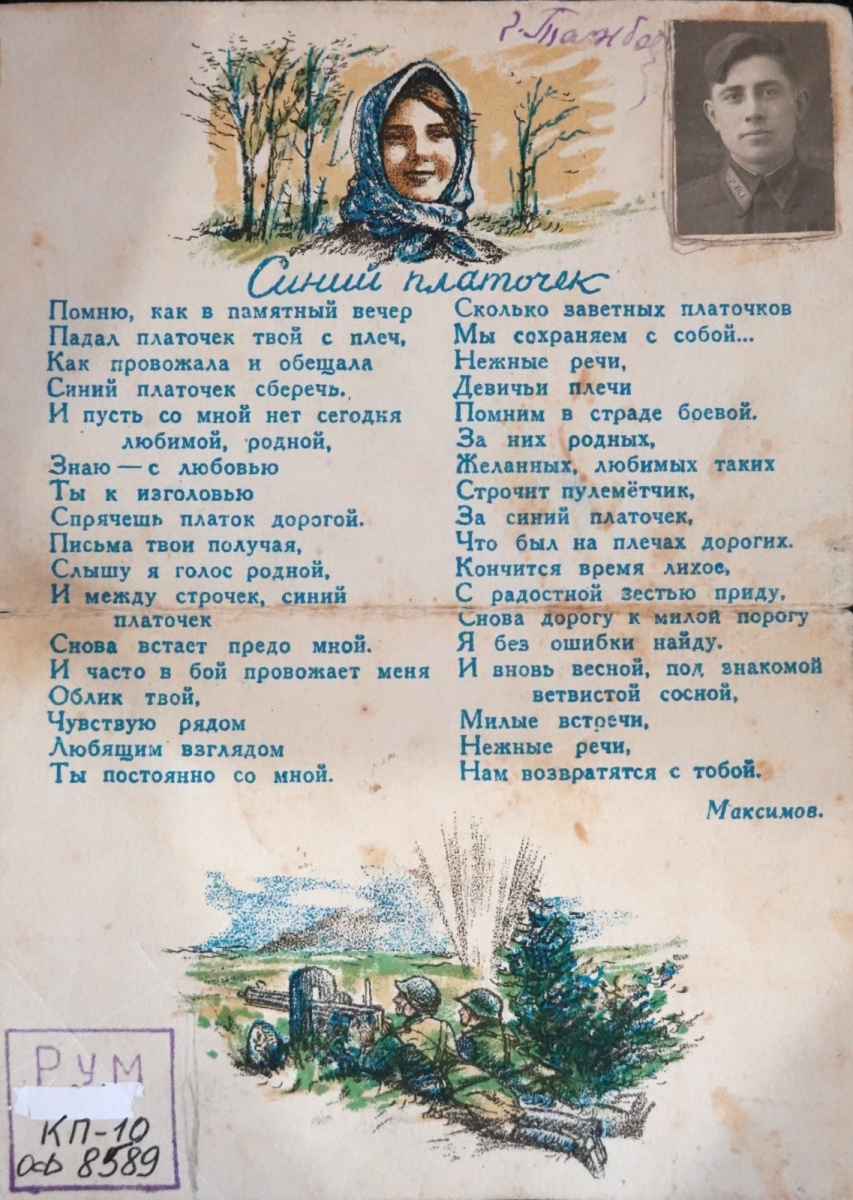 г. Тамбов
Синий платочек
Помню, как в памятный вечер
Падал платочек твой с плеч,
Как провожала и обещала
Синий платочек сберечь.
И пусть со мной нет сегодня
любимой, родной,
Знаю — с любовью
Ты к изголовью
Спрячешь платок дорогой.
Письма твои получая,
Слышу я голос родной,
И между строчек, синий
платочек
Снова встает предо мной.
И часто в бой провожает меня
Облик твой,
Чувствую рядом
Любящим взглядом
Ты постоянно со мной.
Сколько заветных платочков
Мы сохраняем с собой...
Нежные речи,
Девичьи плечи
Помним в страде боевой.
За них родных,
Желанных, любимых таких
Строчит пулемётчик,
За синий платочек,
Что был на плечах дорогих.
Кончится время лихое,
С радостной вестью приду,
Снова дорогу к милой порогу
Я без ошибки найду.
И вновь весной, под знакомой
ветвистой сосной,
Милые встречи,
Нежные речи,
Нам возвратятся с тобой.
Максимов.
РУМ
КП-10
оф 8589